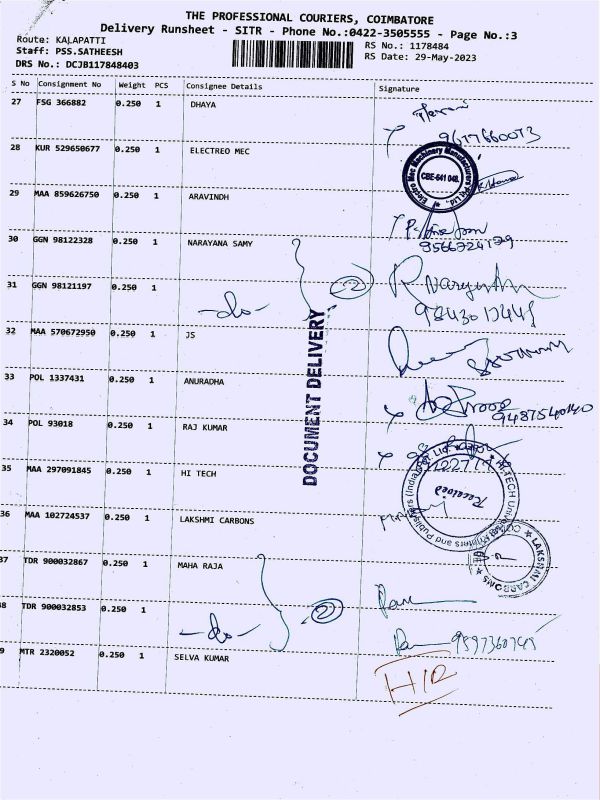 THE PROFESSIONAL COURIERS, COIMBATORE
Delivery Runsheet - SITR - Phone No.:0422-3505555 - Page No.:3
Route: KALAPATTI
RS No.: 1178484
Staff: PSS.SATHEESH
RS Date: 29-May-2023
DRS No.: DCJB117848403
S No Consignment No Weight PCS Consignee Details Signature
27 FSG 366882 0.250 1 DHAYA
9677660073
28 KUR 529650677 0.250 1 ELECTREO MEC
Electro Mec Machinery Manufacturers Pvt Ltd.
CBE-641 048.
29 MAA 859626750 0.250 1 ARAVINDH
9566724129
30 GGN 98122328 0.250 1 NARAYANA SAMY
31 GGN 98121197 0.250 1 -do- 2
32 MAA 570672950 0.250 1 JS
DOCUMENT DELIVERY
33 POL 1337431 0.250 1 ANURADHA
9487540140
34 POL 93018 0.250 1 RAJ KUMAR
35 MAA 297091845 0.250 1 HI TECH
Received
36 MAA 102724537 0.250 1 LAKSHMI CARBONS
LAKSHMI CARBONS
37 TDR 900032867 0.250 1 MAHA RAJA
38 TDR 900032853 0.250 1 -do- 2
9 MTR 2320052 0.250 1 SELVA KUMAR